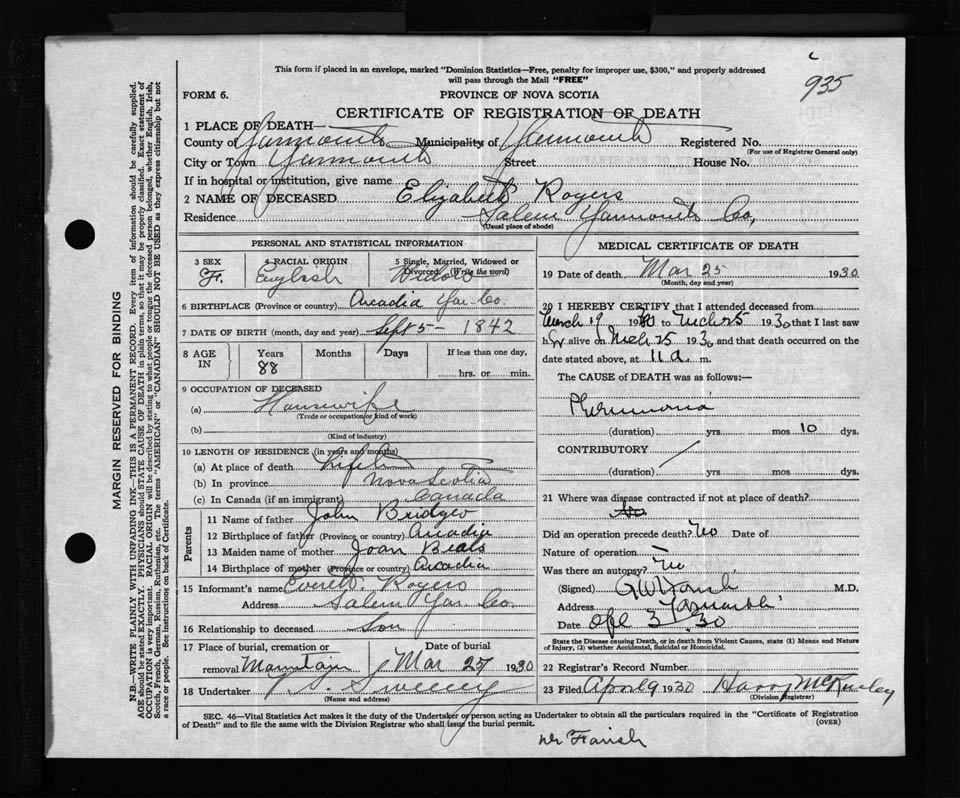 935
This form if placed in an envelope, marked "Dominion Statistics—Free, penalty for improper use, $300," and properly addressed
will pass through the Mail "FREE"
FORM 6. PROVINCE OF NOVA SCOTIA
CERTIFICATE OF REGISTRATION OF DEATH
1 PLACE OF DEATH—
County of Yarmouth Municipality of Yarmouth Registered No.
(For use of Registrar General only)
City or Town Yarmouth Street House No.
If in hospital or institution, give name
2 NAME OF DECEASED Elizabeth Rogers
Residence Salem Yarmouth Co,
(Usual place of abode)
MARGIN RESERVED FOR BINDING
N.B.—WRITE PLAINLY WITH UNFADING INK—THIS IS A PERMANENT RECORD. Every item of information should be carefully supplied.
AGE should be stated EXACTLY. PHYSICIANS should STATE CAUSE OF DEATH in plain terms, so that it may be properly classified. Exact statement of
OCCUPATION is very important. RACIAL ORIGIN will be described by stating to what people or tongue the deceased person belonged, whether English, Irish,
Scotch, French, German, Russian, Ruthenian, etc. The terms "AMERICAN" or "CANADIAN" SHOULD NOT BE USED as they express citizenship but not
a race or people. See instructions on back of Certificate.
PERSONAL AND STATISTICAL INFORMATION
3 SEX 4 RACIAL ORIGIN 5 Single, Married, Widowed or
Divorced. (Write the word)
F. English Widow
6 BIRTHPLACE (Province or country) Arcadia Yar. Co.
7 DATE OF BIRTH (month, day and year) Sept 5 - 1842
8 AGE IN Years Months Days If less than one day,
88 hrs. or min.
9 OCCUPATION OF DECEASED
(a) Housewife
(Trade or occupation or kind of work)
(b)
(Kind of industry)
10 LENGTH OF RESIDENCE (in years and months)
(a) At place of death lifetime
(b) In province Nova Scotia
(c) In Canada (if an immigrant) Canada
Parents
11 Name of father John Bridgeo
12 Birthplace of father (Province or country) Arcadia
13 Maiden name of mother Joan Beals
14 Birthplace of mother (Province or country) Arcadia
15 Informant's name Everett Rogers
Address Salem Yar. Co.
16 Relationship to deceased Son
17 Place of burial, cremation or Date of burial
removal Mountain Mar 27 1930
18 Undertaker Sweeney
(Name and address)
MEDICAL CERTIFICATE OF DEATH
19 Date of death Mar 25 1930
(Month, day and year)
20 I HEREBY CERTIFY that I attended deceased from
March 19 1930 to Mch 25 1930 that I last saw
her alive on Mch 25 1930 and that death occurred on the
date stated above, at 11 a. m.
The CAUSE of DEATH was as follows:—
Pneumonia
(duration) yrs mos 10 dys.
CONTRIBUTORY
(duration) yrs. mos dys.
21 Where was disease contracted if not at place of death?
Did an operation precede death? No Date of
Nature of operation
Was there an autopsy? No
(Signed) M.D.
Address Yarmouth
Date Apl 3 30
State the Disease causing Death, or in death from Violent Causes, state (1) Means and Nature
of Injury, (2) whether Accidental, Suicidal or Homicidal.
22 Registrar's Record Number
23 Filed April 9 1930 Harry McKinley
(Division Registrar)
SEC. 46—Vital Statistics Act makes it the duty of the Undertaker or person acting as Undertaker to obtain all the particulars required in the "Certificate of Registration
of Death" and to file the same with the Division Registrar who shall issue the burial permit. (OVER)
Dr Farish